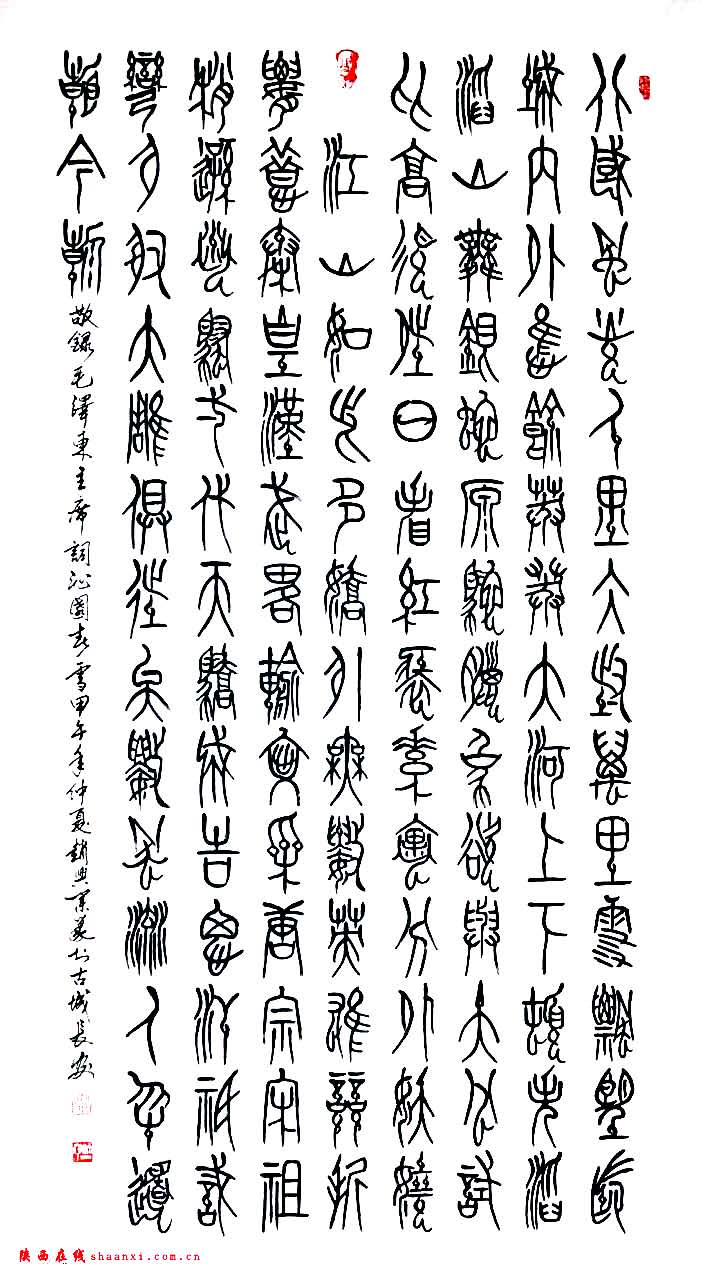 北國風光千里冰封萬里雪飄望長
城內外惟餘莽莽大河上下頓失滔
滔山舞銀蛇原馳臘象欲與天公試
比高須晴日看紅裝素裹分外妖嬈
江山如此多嬌引無數英雄競折
腰惜秦皇漢武略輸文采唐宗宋祖
稍遜風騷一代天驕成吉思汗祇識
彎弓射大雕俱往矣數風流人物還
朝今朝
敬錄毛澤東主席詞沁園春雪甲午年仲夏趙興業篆於古城長安
陕西在线shaanxi.com.cn